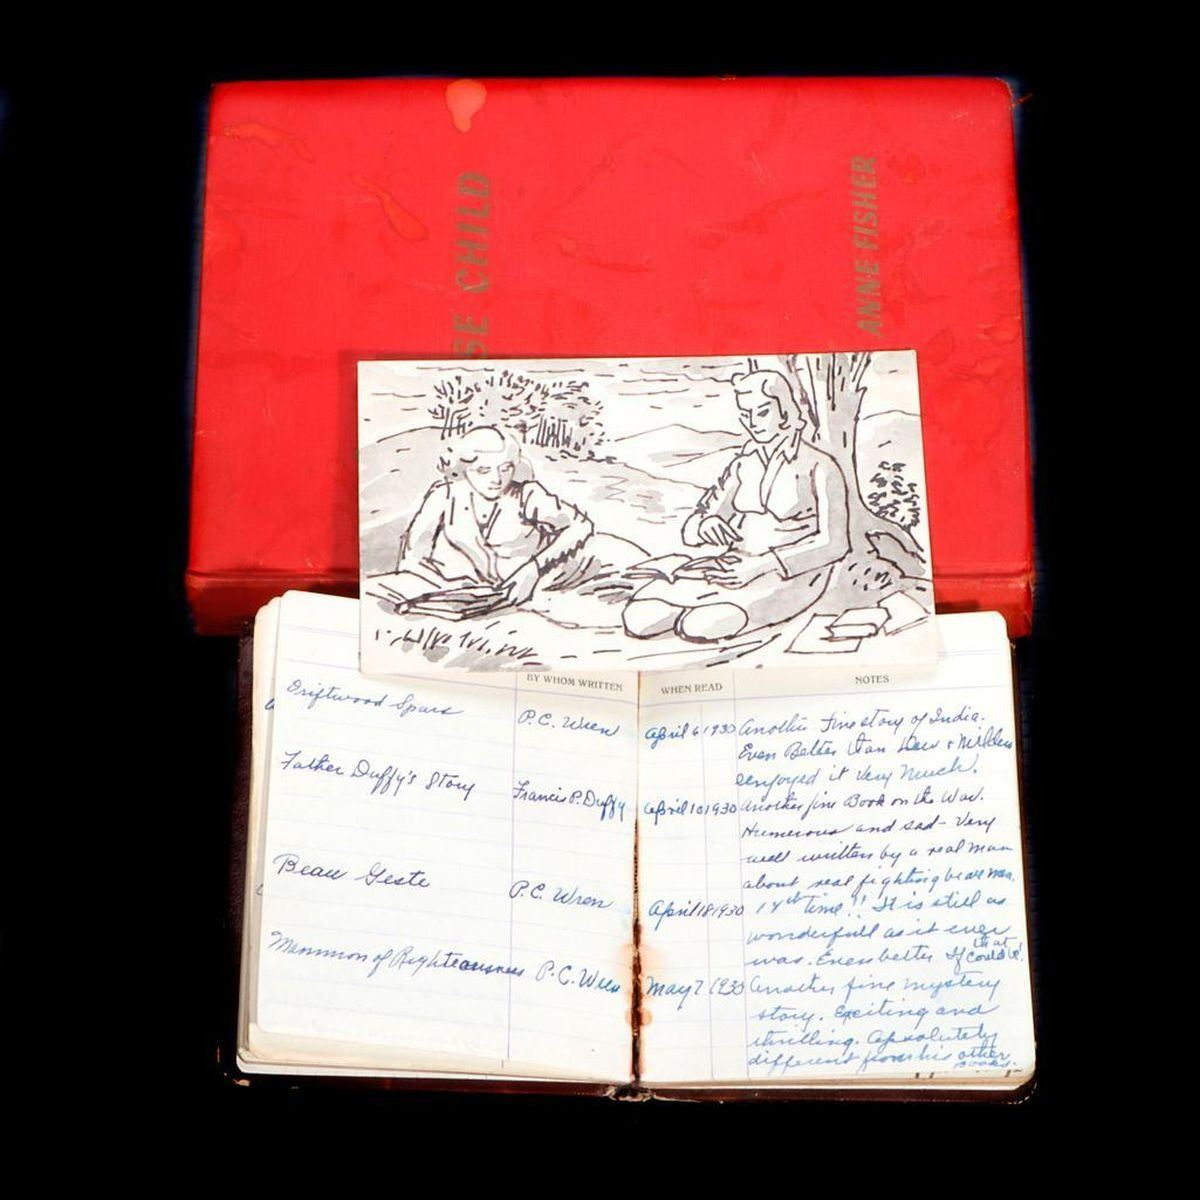 SE CHILD
ANNE FISHER
BY WHOM WRITTEN
WHEN READ
NOTES
Driftwood Spars
P.C. Wren
April 6 1930
Another Fine story of India.
Even Better than Dew & Mildew
enjoyed it Very Much.
Father Duffy's Story
Francis P. Duffy
April 10 1930
Another fine Book on the War.
Humerous and sad - Very
well written by a real man
about real fighting
Beau Geste
P.C. Wren
April 18 1930
14th time!! It is still as
wonderfull as it ever
was. Even better If that could be!
Mammon of Righteousness
P.C. Wren
May 7 1930
Another fine mystery
story. Exciting and
thrilling. Absolutely
different from his other
Books.